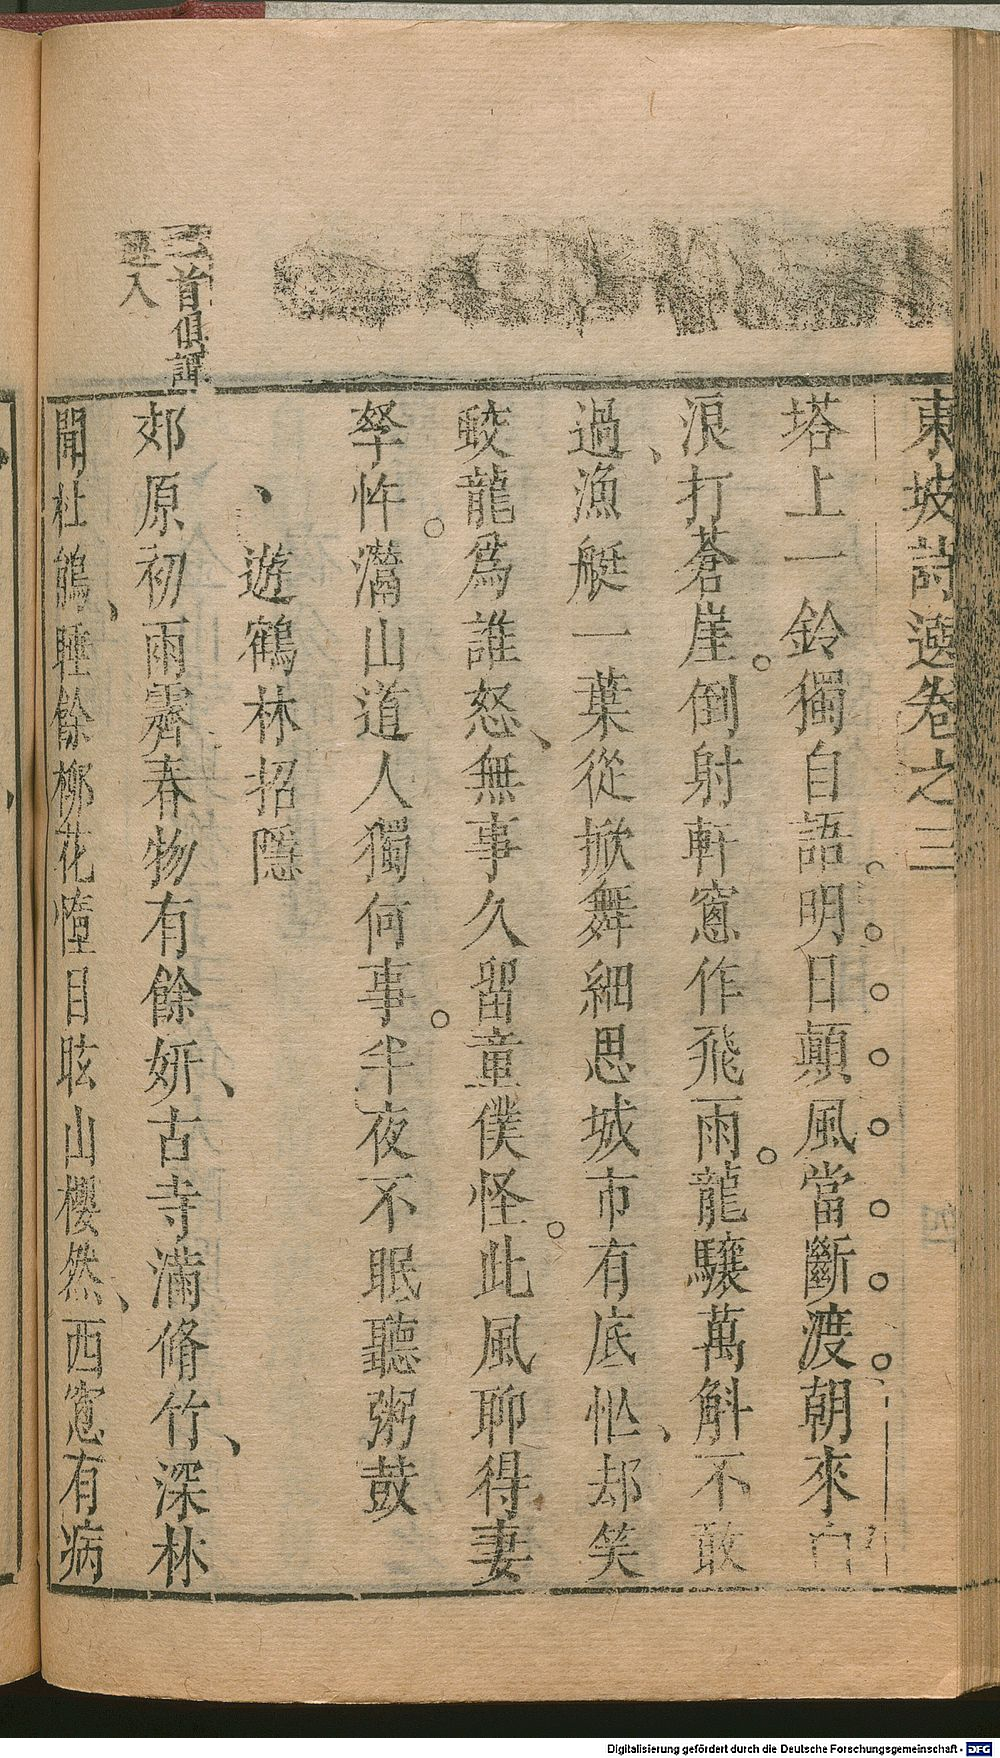 東坡詩選卷之三
塔上一鈴獨自語明日顛風當斷渡朝來白
浪打蒼崖倒射軒窻作飛雨龍驤萬斛不敢
過漁艇一葉從掀舞細思城市有底忙却笑
蛟龍爲誰怒無事久留童僕怪此風聊得妻
孥忤灊山道人獨何事半夜不眠聽粥鼓
遊鶴林招隱
郊原初雨霽春物有餘妍古寺滿脩竹深林
聞杜鵑睡餘柳花墮目眩山櫻然西窻有病
首俱
入
Digitalisierung gefördert durch die Deutsche Forschungsgemeinschaft - DFG